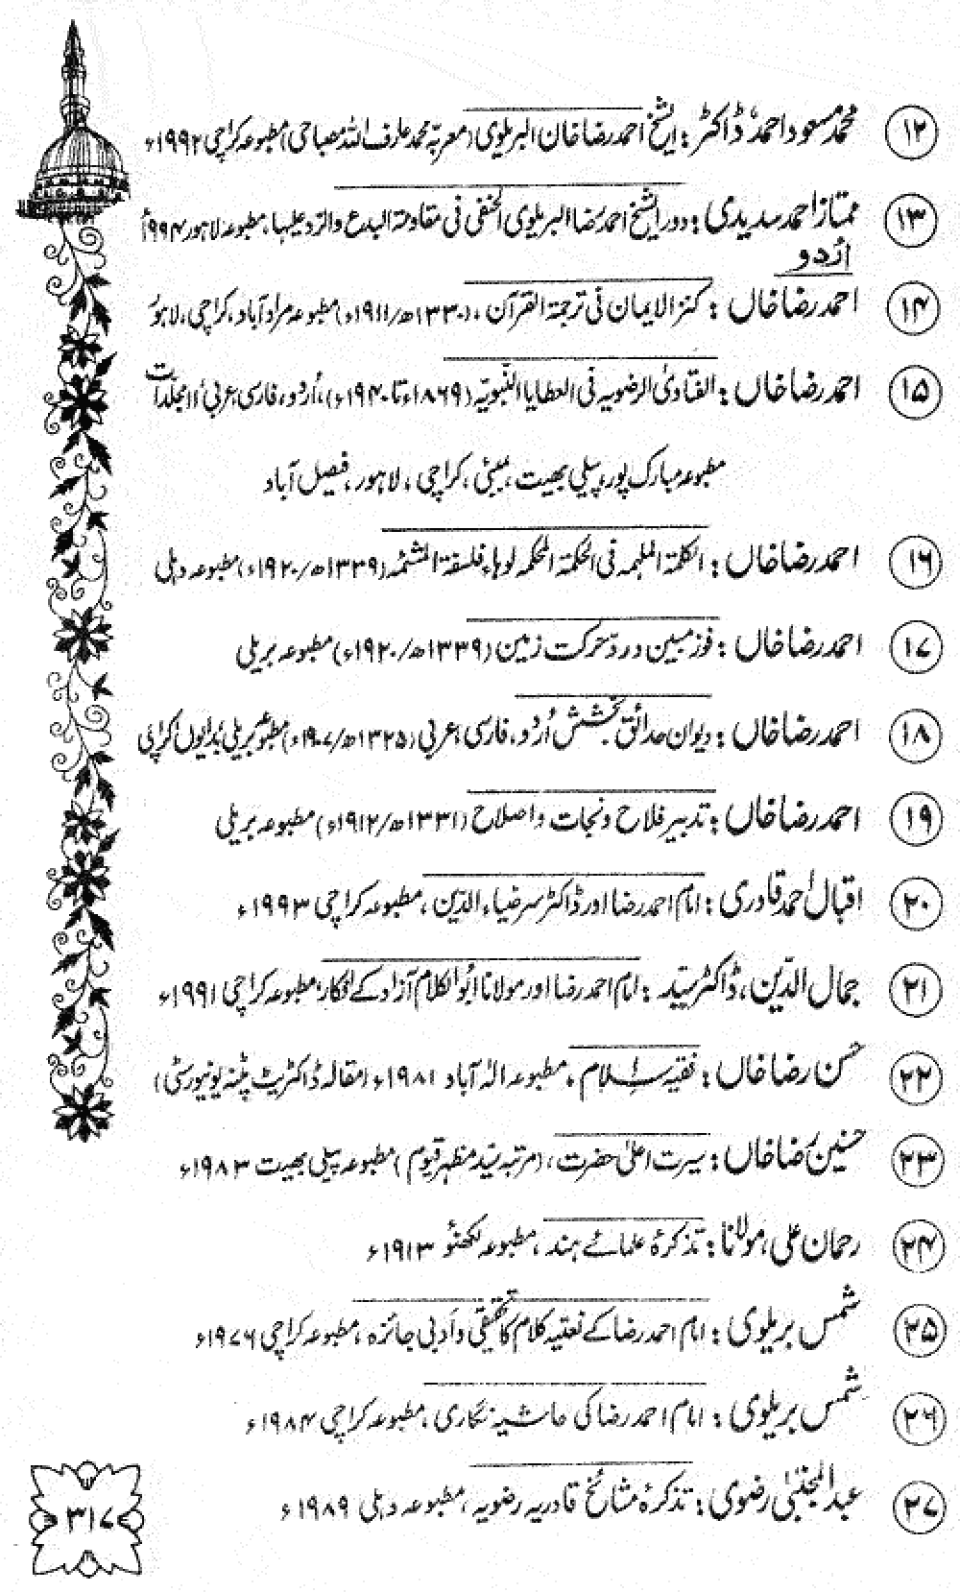 ۱۲ محمد مسعود احمد، ڈاکٹر : الشیخ احمد رضا خان البریلوی (معربہ محمد عارف اللہ مصباحی) مطبوعہ کراچی ۱۹۹۲ء
۱۳ ممتاز احمد سدیدی : دور الشیخ احمد رضا البریلوی الحنفی فی مقاومۃ البدع والرد علیہا، مطبوعہ لاہور ۱۹۹۴ء
اُردو
۱۴ احمد رضا خاں : کنز الایمان فی ترجمۃ القرآن، (۱۳۳۰ھ/۱۹۱۱ء) مطبوعہ مراد آباد، کراچی، لاہور
۱۵ احمد رضا خاں : الفتاویٰ الرضویہ فی العطایا النبویہ (۱۸۶۹ء تا ۱۹۴۰ء)، اُردو، فارسی، عربی ۱۱ مجلدات
مطبوعہ مبارک پور، پیلی بھیت، بمبئی، کراچی، لاہور، فیصل آباد
۱۶ احمد رضا خاں : الکلمۃ الملہمہ فی الحکمۃ المحکمہ لوہاء فلسفۃ المشئمہ (۱۳۳۹ھ/۱۹۲۰ء) مطبوعہ دہلی
۱۷ احمد رضا خاں : فوز مبین در ردّ حرکت زمین (۱۳۳۹ھ/۱۹۲۰ء) مطبوعہ بریلی
۱۸ احمد رضا خاں : دیوان حدائق بخشش اُردو، فارسی، عربی (۱۳۲۵ھ/۱۹۰۷ء) مطبوعہ بریلی بدایوں کراچی
۱۹ احمد رضا خاں : تدبیر فلاح و نجات و اصلاح (۱۳۳۱ھ/۱۹۱۲ء) مطبوعہ بریلی
۲۰ اقبال احمد قادری : امام احمد رضا اور ڈاکٹر سر ضیاء الدین، مطبوعہ کراچی ۱۹۹۳ء
۲۱ جمال الدین، ڈاکٹر سید : امام احمد رضا اور مولانا ابو الکلام آزاد کے افکار، مطبوعہ کراچی ۱۹۹۱ء
۲۲ حسن رضا خاں : فقیہ اسلام، مطبوعہ الٰہ آباد ۱۹۸۱ء (مقالہ ڈاکٹریٹ پٹنہ یونیورسٹی)
۲۳ حسنین رضا خاں : سیرت اعلیٰ حضرت، (مرتبہ سید مظہر قیوم) مطبوعہ پیلی بھیت ۱۹۸۳ء
۲۴ رحمان علی، مولانا : تذکرۂ علمائے ہند، مطبوعہ لکھنؤ ۱۹۱۳ء
۲۵ شمس بریلوی : امام احمد رضا کے نعتیہ کلام کا تحقیقی و ادبی جائزہ، مطبوعہ کراچی ۱۹۷۶ء
۲۶ شمس بریلوی : امام احمد رضا کی حاشیہ نگاری، مطبوعہ کراچی ۱۹۸۴ء
۲۷ عبد المجتبیٰ رضوی : تذکرۂ مشائخ قادریہ رضویہ، مطبوعہ دہلی ۱۹۸۹ء
۳۱۷